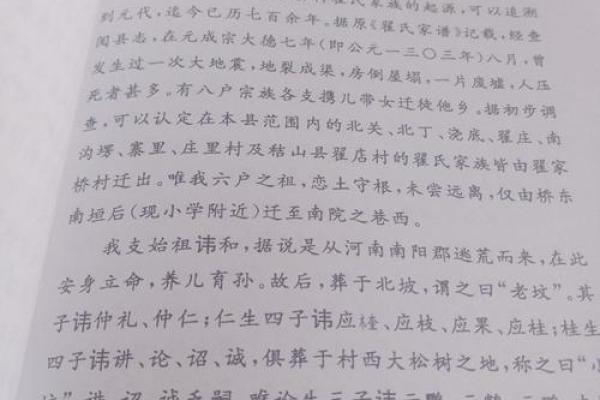 氏家族的起源，可以追溯
到元代，迄今已历七百余年。据原《翟氏家谱》记载，经查
闻县志，在元成宗大德七年（即公元一三〇三年）八月，曾
发生过一次大地震，地裂成渠，房倒屋塌，一片废墟，人压
死者甚多。有八户宗族各支携儿带女迁徙他乡。据初步调
查，可以认定在本县范围内的北关、北丁、浇底、翟庄、南
沟塄、寨里、庄里村及稷山县翟店村的翟氏家族皆由翟家
桥村迁出。唯我六户之祖，恋土守根，未尝远离，仅由桥东
南垣后（现小学附近）迁至南院之巷西。
我支始祖讳和，据说是从河南南阳郡逃荒而来，在此
安身立命，养儿育孙。故后，葬于北坡，谓之曰“老坟”。其
子讳仲礼、仲仁；仁生四子讳应桂、应枝、应果、应桂；桂生
四子讳讲、论、诏、诚，俱葬于村西大松树之地，称之曰“
坟”讲 诏 诚 嗣 唯论生三子讳云鹏